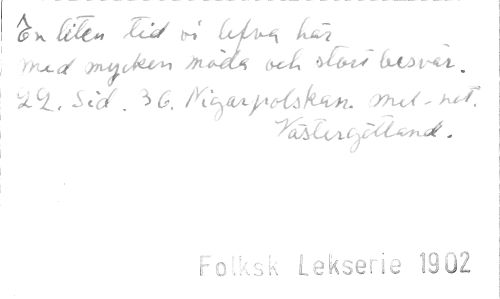 En liten tid vi lefva här
med mycken möda och stort besvär.
22. Sid. 36. Nigarpolskan. mel-not.
Västergötland.
Folksk Lekserie 1902